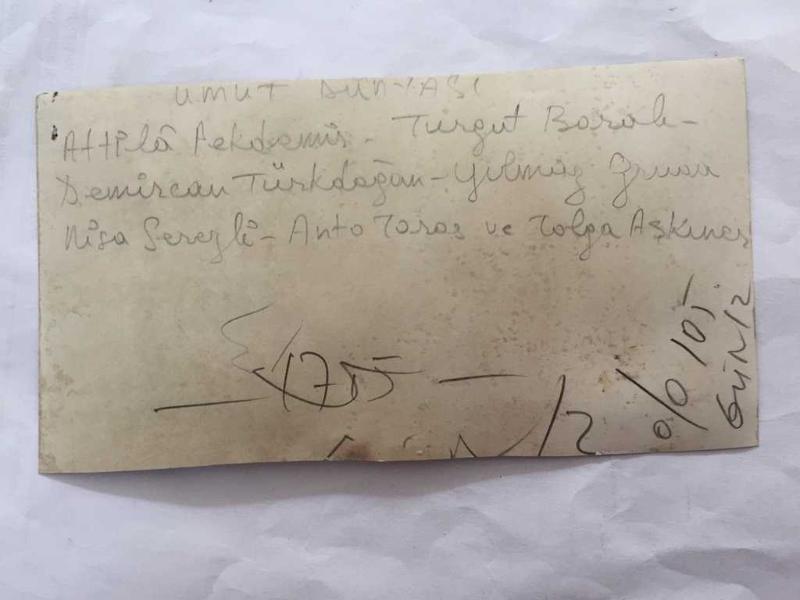 UMUT DÜNYASI
Attilâ Pekdemir - Turgut Boralı -
Demircan Türkdoğan - Yılmaz Gruda
Nisa Serezli - Anto Toros ve Tolga Aşkıner
— 17,5 —
1/2
% 105
GÜN 12